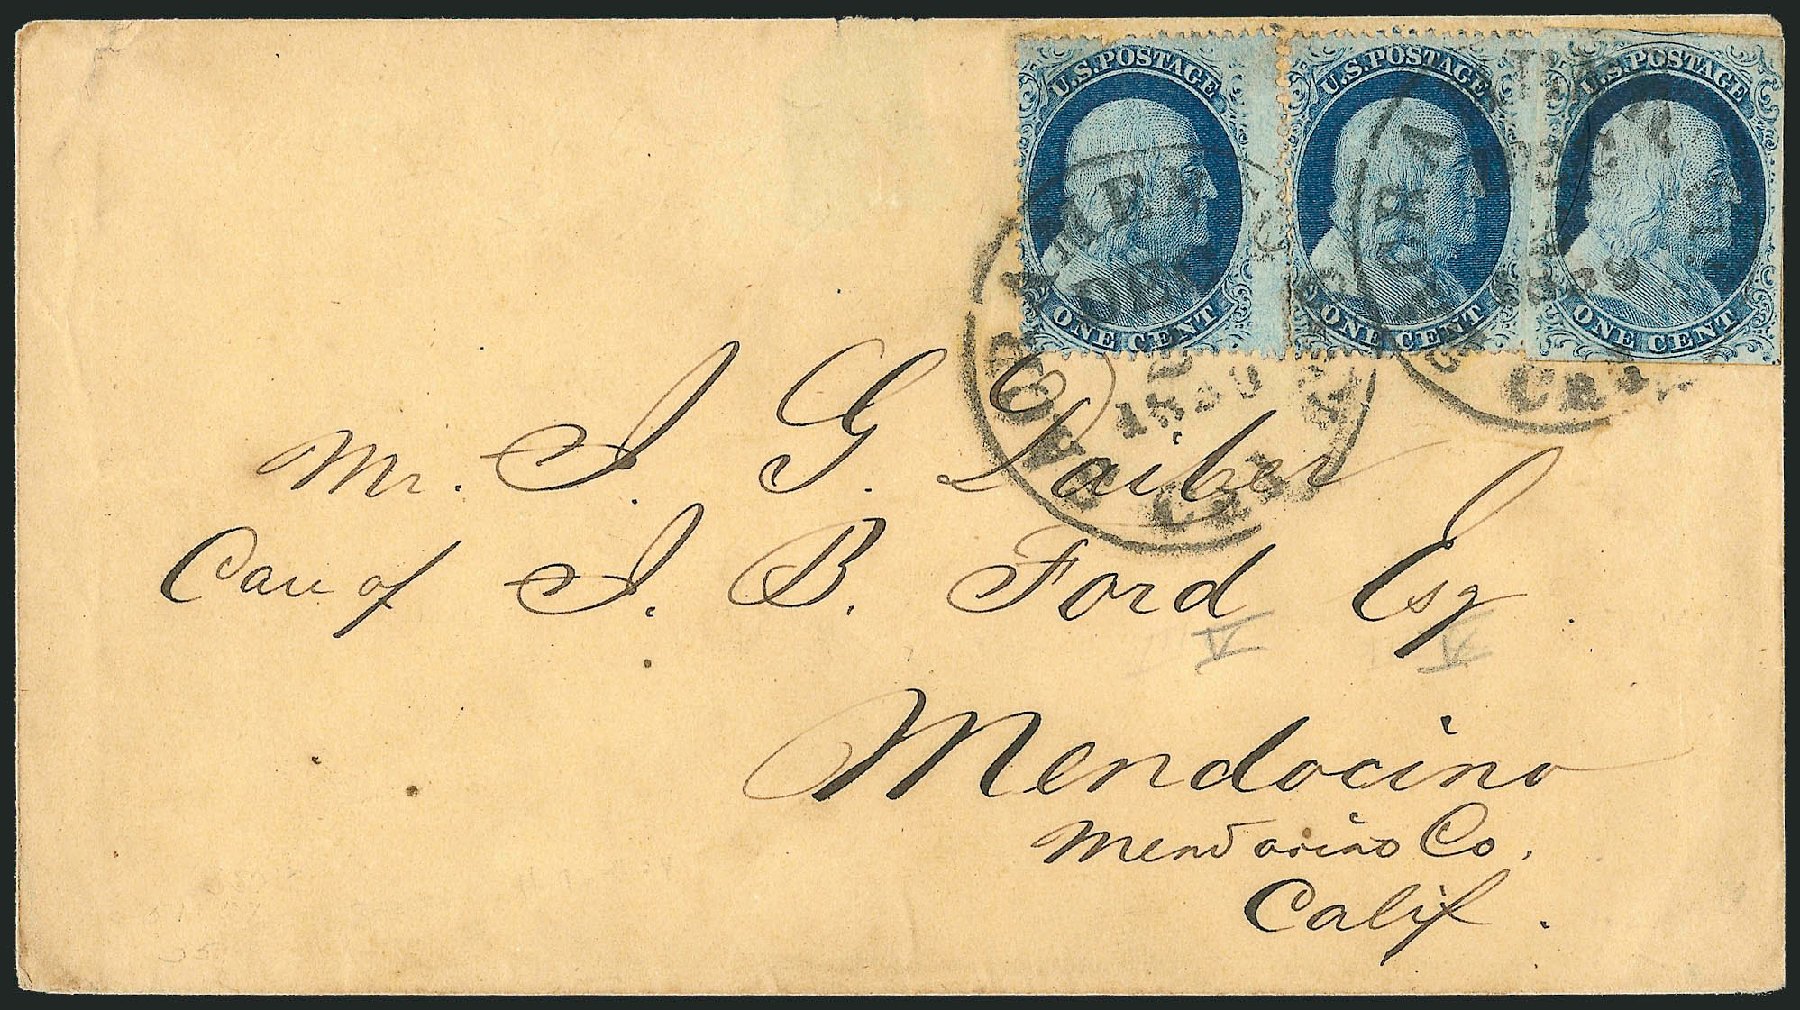 U.S. POSTAGE U.S. POSTAGE U.S. POSTAGE
ONE CENT ONE CENT ONE CENT
SACRAMEN
DE
2
1859
CAL
Mr. J. G. Laiber
Care of J. B. Ford Esq.
V V
Mendocino
Mendocino Co.
Calif.